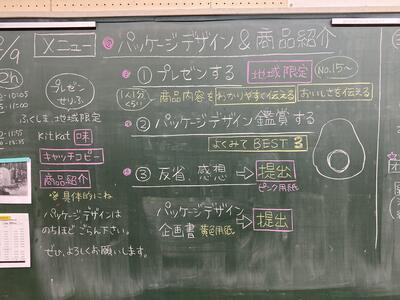 /9
2h
メニュー
プレゼン
せりふ
ふくしま 地域限定
kitkat 味
キャッチコピー
商品紹介
具体的にね
パッケージデザインは
のちほど ごらん下さい。
ぜひ、よろしくお願いします。
◎パッケージデザイン&商品紹介
①プレゼンする 地域限定 No.15~
1人1分ぐらい 商品内容をわかりやすく伝える おいしさを伝える
②パッケージデザイン鑑賞する
よくみて BEST 3
③反省、感想 ⇒ 提出
ピンク用紙
パッケージデザイン
企画書 黄色用紙 ⇒ 提出